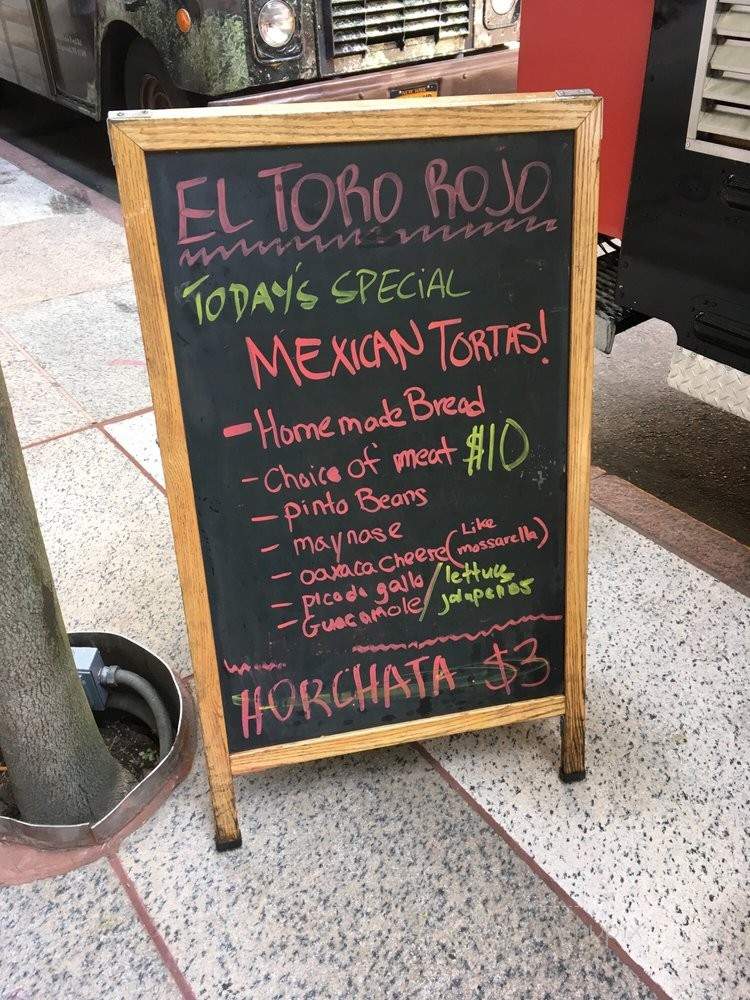 EL TORO ROJO
TODAY'S SPECiAL
MEXICAN TORTAS!
- Homemade Bread
- Choice of meat $10
- pinto Beans
- maynase
- oaxaca cheese (Like mossarella)
- picoda gallo / lettuce
- Guacamole / jalapeños
HORCHATA $3